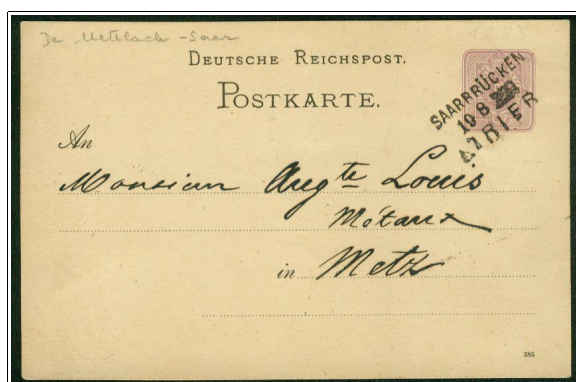 De Mettlach - Saar
DEUTSCHE REICHSPOST.
POSTKARTE.
SAARBRÜCKEN
19 8
TRIER
An
Monsieur Aug^te Louis
Métaux
in Metz
385